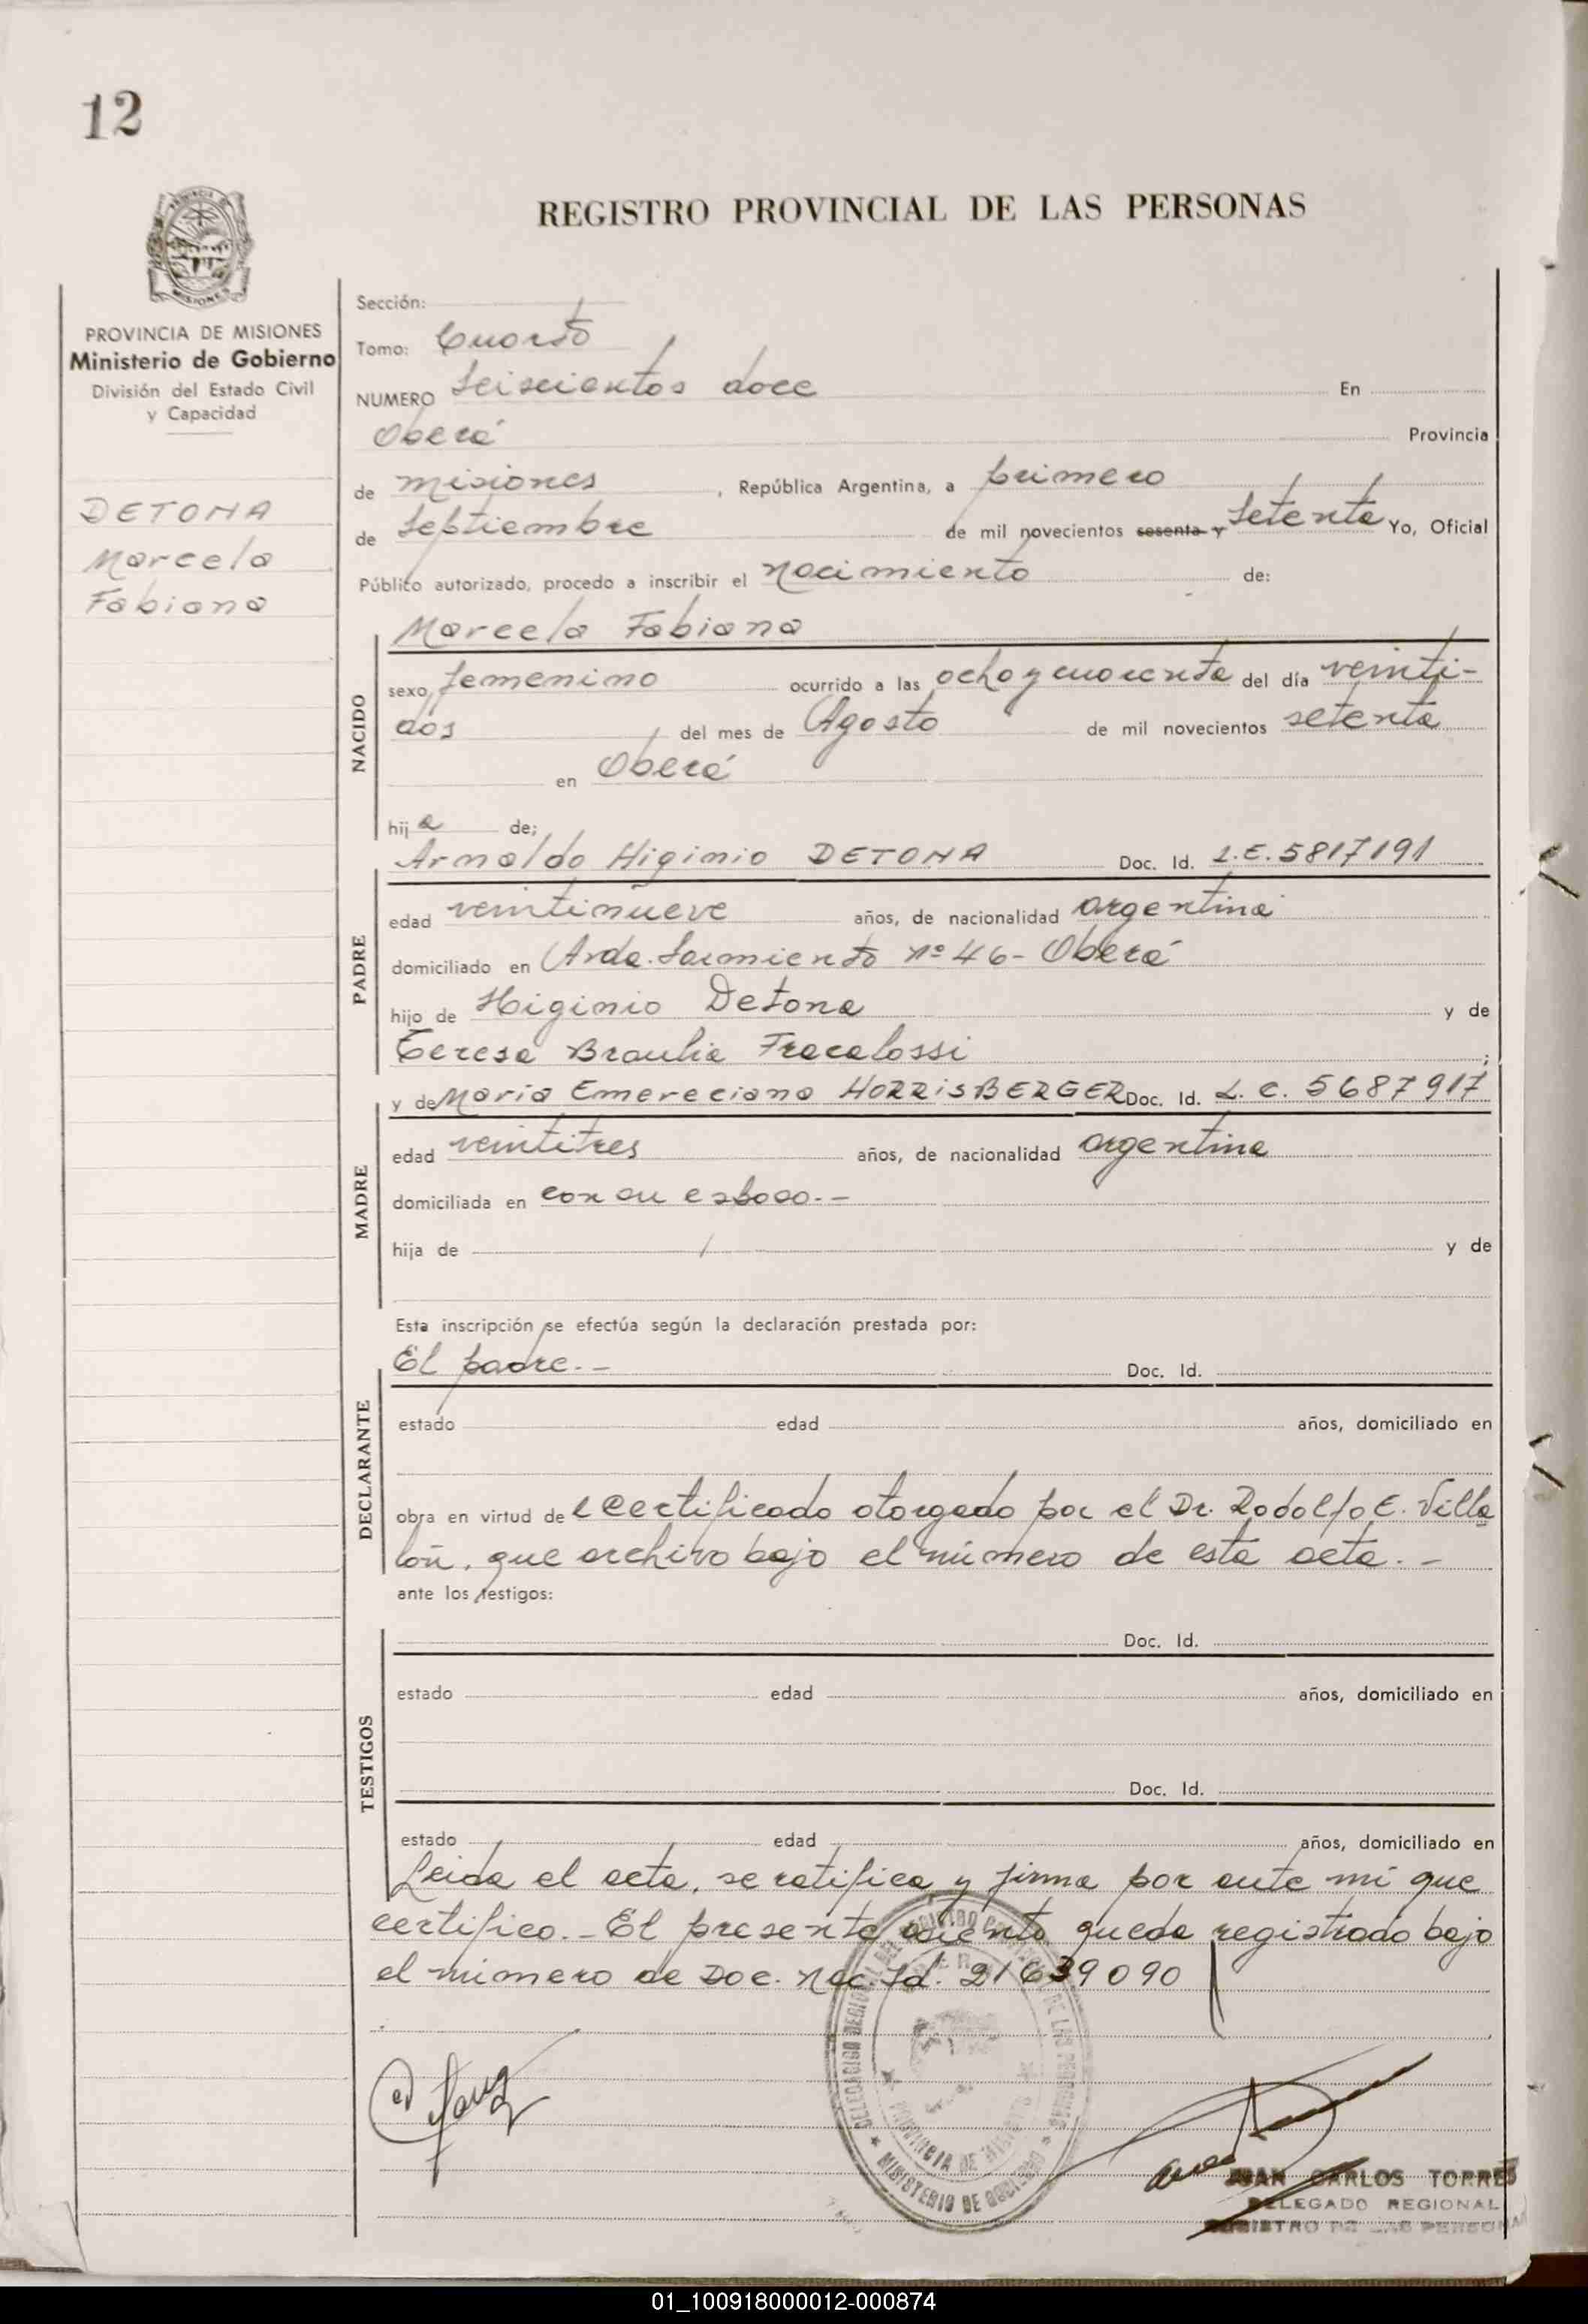 12
REGISTRO PROVINCIAL DE LAS PERSONAS
MISIONES
PROVINCIA DE MISIONES
Ministerio de Gobierno
División del Estado Civil
y Capacidad
DETONA
Marcela
Fabiana
Sección:
Tomo: Cuarto
NUMERO Seiscientos doce En
Oberá Provincia
de Misiones , República Argentina, a primero
de Septiembre de mil novecientos sesenta y Setenta Yo, Oficial
Público autorizado, procedo a inscribir el nacimiento de:
Marcela Fabiana
NACIDO
sexo femenino ocurrido a las ocho y cuarenta del día veinti-
dos del mes de Agosto de mil novecientos setenta
en Oberá
hij a de;
Arnoldo Higinio DETONA Doc. Id. L.E. 5817191
PADRE
edad veintinueve años, de nacionalidad argentina
domiciliado en Avda. Sarmiento nº 46- Oberá
hijo de Higinio Detona y de
Teresa Braulia Fracalossi ;
y de María Emereciana HORRISBERGER Doc. Id. L. C. 5687917
MADRE
edad veintitres años, de nacionalidad argentina
domiciliada en con su esposo.-
hija de / y de
Esta inscripción se efectúa según la declaración prestada por:
El padre.- Doc. Id.
DECLARANTE
estado edad años, domiciliado en
obra en virtud de l certificado otorgado por el Dr. Rodolfo E. Villa
lón, que archivo bajo el número de esta acta.-
ante los testigos:
Doc. Id.
TESTIGOS
estado edad años, domiciliado en
Doc. Id.
estado edad años, domiciliado en
Leida el acta, se ratifica y firma por ante mí que
certifico.- El presente asiento queda registrado bajo
el número de Doc. Nac. Id. 21639090
PROVINCIA DE MISIONES
MINISTERIO DE GOBIERNO
JUAN CARLOS TORRES
DELEGADO REGIONAL
REGISTRO DE LAS PERSONAS
01_100918000012-000874